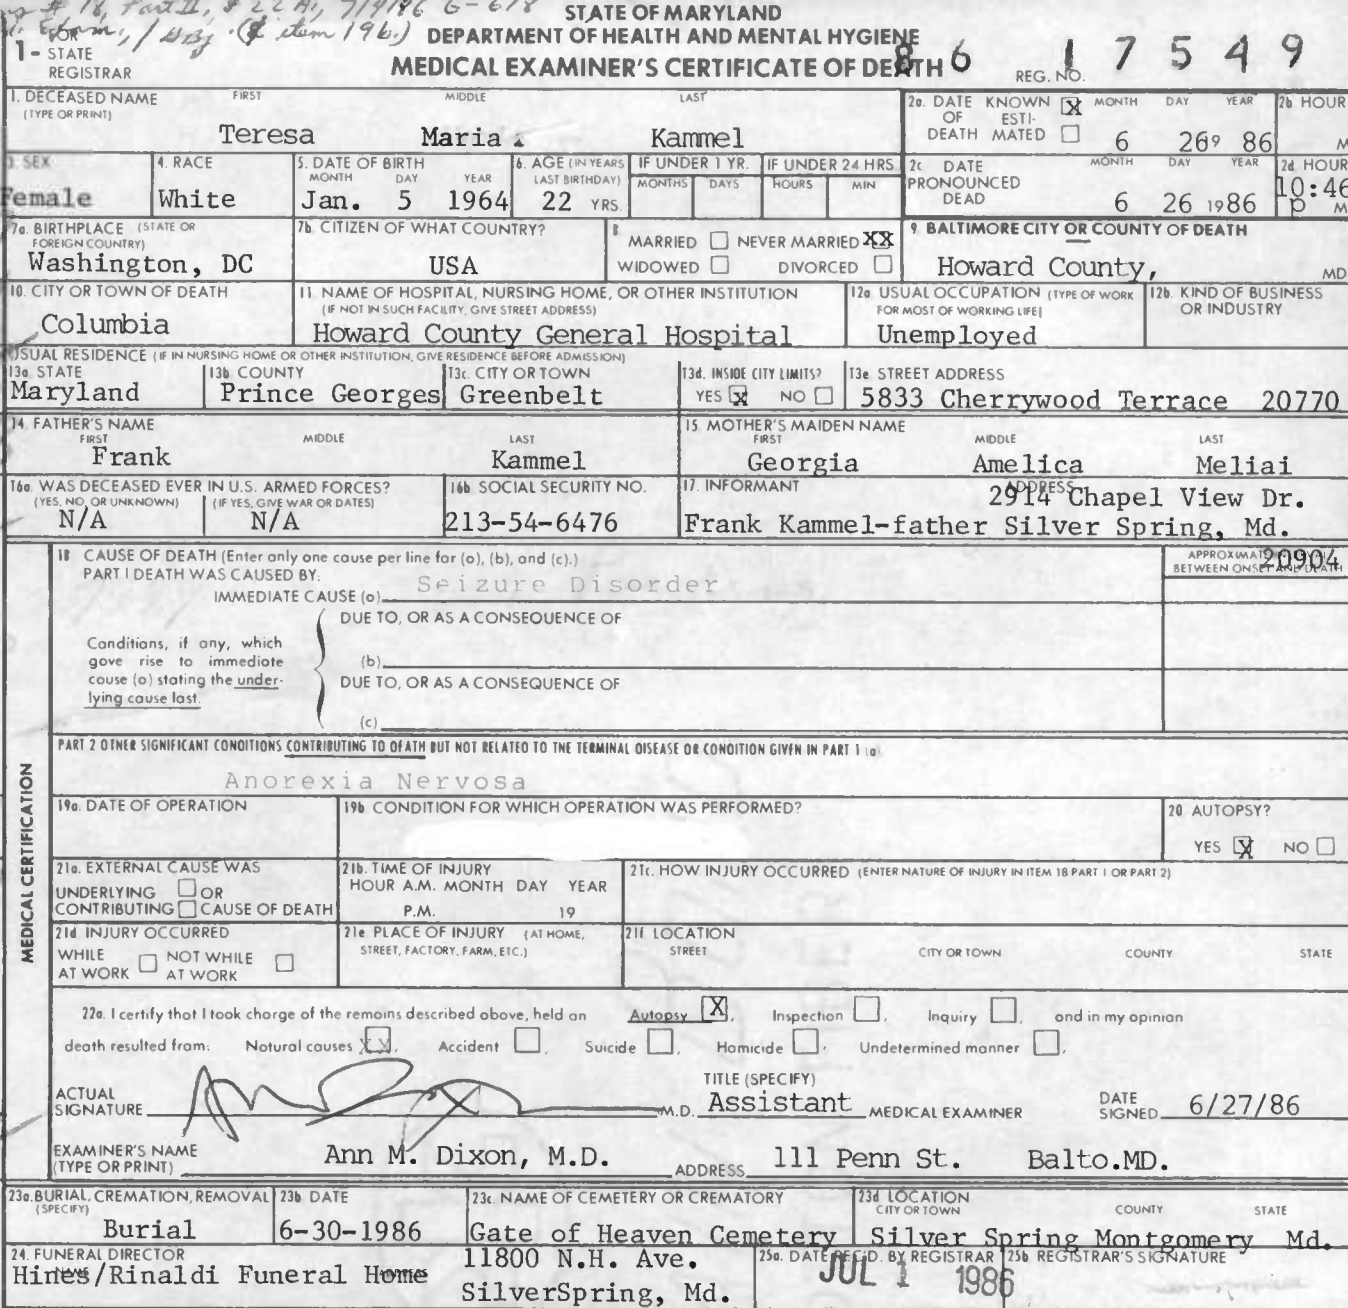 # 18, Part II, # 22 A, 7/9/86 G-618
(# item 19b.)
STATE OF MARYLAND
DEPARTMENT OF HEALTH AND MENTAL HYGIENE
MEDICAL EXAMINER'S CERTIFICATE OF DEATH
1- FOR STATE REGISTRAR
REG. NO. 86 17549
1. DECEASED NAME (TYPE OR PRINT) FIRST MIDDLE LAST
Teresa Maria Kammel
2a. DATE OF DEATH KNOWN X ESTIMATED MONTH DAY YEAR
6 26 86
2b HOUR M
3. SEX
Female
4. RACE
White
5. DATE OF BIRTH MONTH DAY YEAR
Jan. 5 1964
6. AGE (IN YEARS LAST BIRTHDAY)
22 YRS.
IF UNDER 1 YR. MONTHS DAYS
IF UNDER 24 HRS HOURS MIN
2c DATE PRONOUNCED DEAD MONTH DAY YEAR
6 26 1986
2d HOUR
10:46 P M
7a. BIRTHPLACE (STATE OR FOREIGN COUNTRY)
Washington, DC
7b. CITIZEN OF WHAT COUNTRY?
USA
8 MARRIED NEVER MARRIED XX
WIDOWED DIVORCED
9. BALTIMORE CITY OR COUNTY OF DEATH
Howard County, MD
10. CITY OR TOWN OF DEATH
Columbia
11. NAME OF HOSPITAL, NURSING HOME, OR OTHER INSTITUTION
(IF NOT IN SUCH FACILITY, GIVE STREET ADDRESS)
Howard County General Hospital
12a. USUAL OCCUPATION (TYPE OF WORK FOR MOST OF WORKING LIFE)
Unemployed
12b. KIND OF BUSINESS OR INDUSTRY
USUAL RESIDENCE (IF IN NURSING HOME OR OTHER INSTITUTION, GIVE RESIDENCE BEFORE ADMISSION)
13a. STATE
Maryland
13b. COUNTY
Prince Georges
13c. CITY OR TOWN
Greenbelt
13d. INSIDE CITY LIMITS?
YES X NO
13e STREET ADDRESS
5833 Cherrywood Terrace 20770
14. FATHER'S NAME FIRST MIDDLE LAST
Frank Kammel
15. MOTHER'S MAIDEN NAME FIRST MIDDLE LAST
Georgia Amelica Meliai
16a. WAS DECEASED EVER IN U.S. ARMED FORCES?
(YES, NO, OR UNKNOWN) (IF YES, GIVE WAR OR DATES)
N/A N/A
16b. SOCIAL SECURITY NO.
213-54-6476
17. INFORMANT ADDRESS
2914 Chapel View Dr.
Frank Kammel-father Silver Spring, Md.
20904
18 CAUSE OF DEATH (Enter only one cause per line for (a), (b), and (c).)
PART I DEATH WAS CAUSED BY:
IMMEDIATE CAUSE (a) Seizure Disorder
APPROXIMATE
BETWEEN ONSET AND DEATH
Conditions, if any, which
gave rise to immediate
cause (a) stating the under-
lying cause last.
DUE TO, OR AS A CONSEQUENCE OF
(b)
DUE TO, OR AS A CONSEQUENCE OF
(c)
PART 2 OTHER SIGNIFICANT CONDITIONS CONTRIBUTING TO DEATH BUT NOT RELATED TO THE TERMINAL DISEASE OR CONDITION GIVEN IN PART 1 (a)
Anorexia Nervosa
MEDICAL CERTIFICATION
19a. DATE OF OPERATION
19b CONDITION FOR WHICH OPERATION WAS PERFORMED?
20 AUTOPSY?
YES X NO
21a. EXTERNAL CAUSE WAS
UNDERLYING OR
CONTRIBUTING CAUSE OF DEATH
21b. TIME OF INJURY
HOUR A.M. MONTH DAY YEAR
P.M. 19
21c. HOW INJURY OCCURRED (ENTER NATURE OF INJURY IN ITEM 18 PART 1 OR PART 2)
21d INJURY OCCURRED
WHILE AT WORK NOT WHILE AT WORK
21e PLACE OF INJURY (AT HOME, STREET, FACTORY, FARM, ETC.)
21f. LOCATION
STREET CITY OR TOWN COUNTY STATE
22a. I certify that I took charge of the remains described above, held an Autopsy X, Inspection , Inquiry , and in my opinion
death resulted from: Natural causes XX, Accident , Suicide , Homicide , Undetermined manner .
ACTUAL SIGNATURE M.D.
TITLE (SPECIFY)
Assistant MEDICAL EXAMINER
DATE SIGNED 6/27/86
EXAMINER'S NAME (TYPE OR PRINT) Ann M. Dixon, M.D.
ADDRESS 111 Penn St. Balto.MD.
23a. BURIAL, CREMATION, REMOVAL (SPECIFY)
Burial
23b. DATE
6-30-1986
23c. NAME OF CEMETERY OR CREMATORY
Gate of Heaven Cemetery
23d LOCATION CITY OR TOWN COUNTY STATE
Silver Spring Montgomery Md.
24. FUNERAL DIRECTOR
Hines/Rinaldi Funeral Home
11800 N.H. Ave.
SilverSpring, Md.
25a. DATE REC'D. BY REGISTRAR
JUL 1 1986
25b REGISTRAR'S SIGNATURE